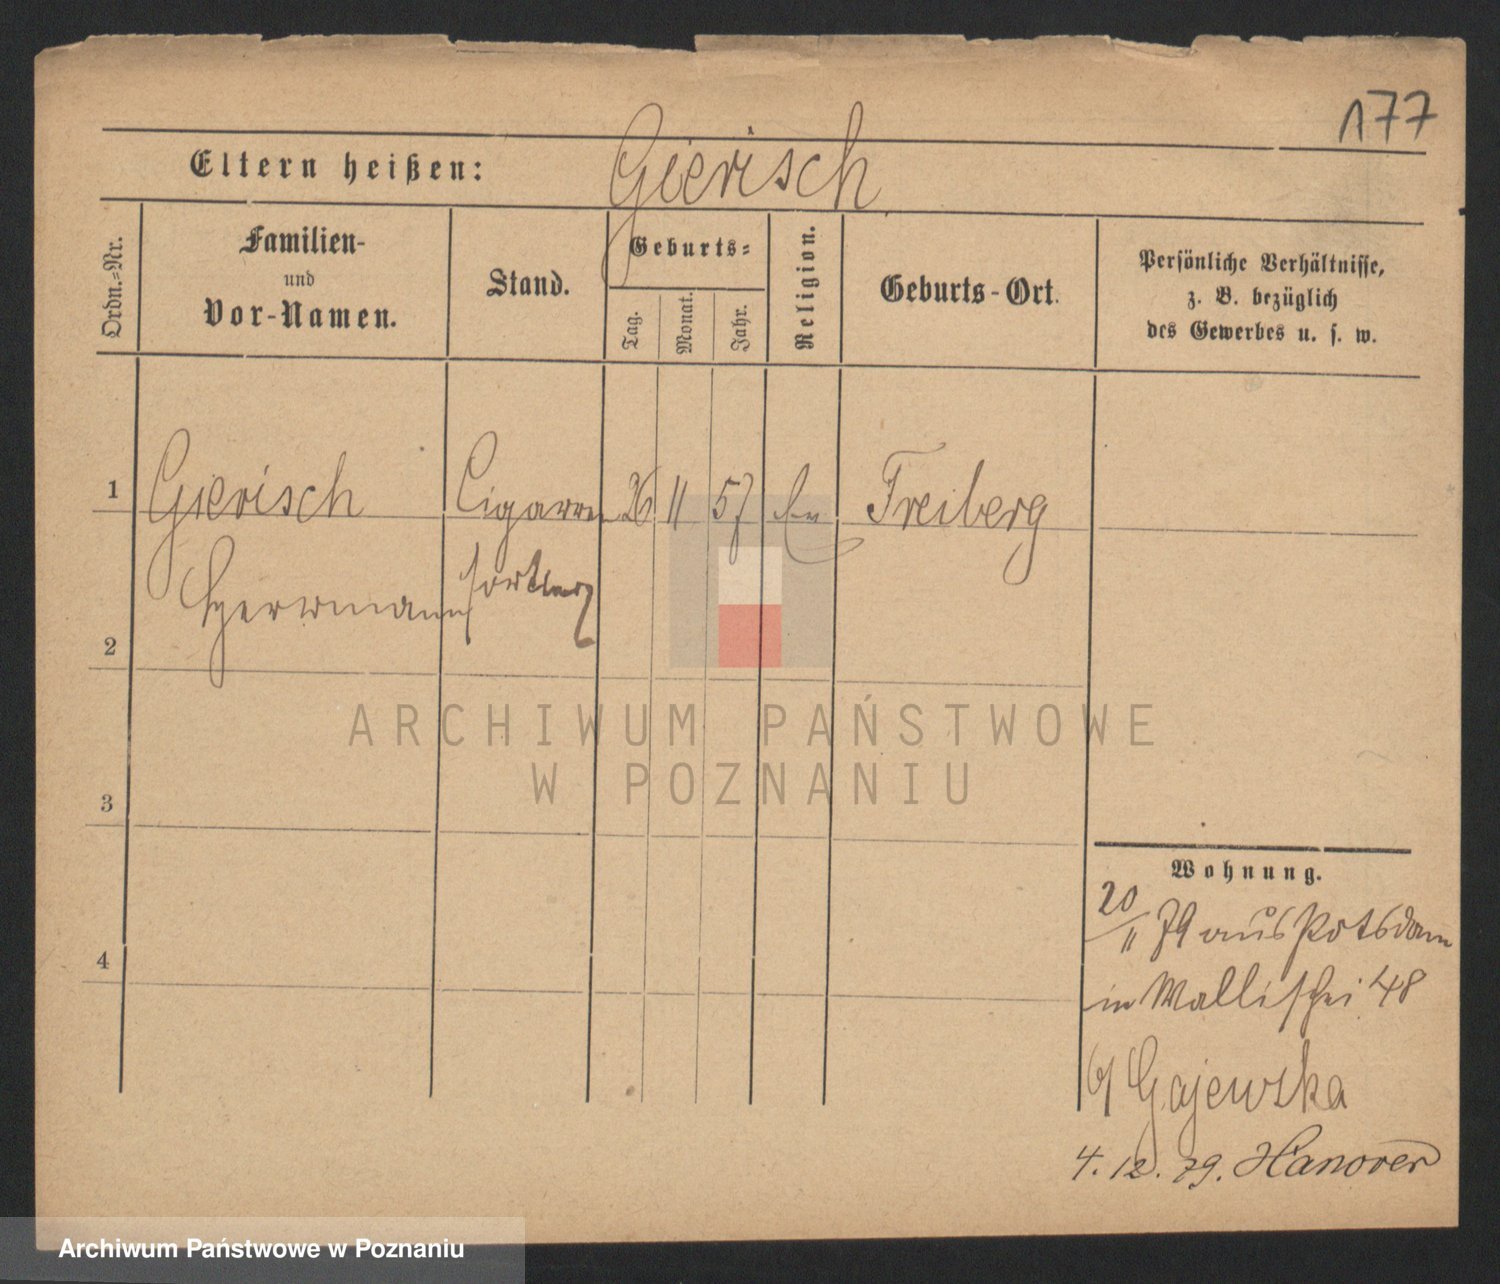 177
Eltern heißen: Gierisch
Ordn.-Nr.
Familien-
und
Vor-Namen.
Stand.
Geburts-
Tag.
Monat.
Jahr.
Religion.
Geburts-Ort.
Persönliche Verhältnisse,
z. B. bezüglich
des Gewerbes u. s. w.
1 Gierisch Cigarren 26 11 57 Ev Freiberg
Herrmann
2
3
4
ARCHIWUM PAŃSTWOWE
W POZNANIU
Wohnung.
20/11 79 aus Potsdam
in Wallischei 48
b/ Gajewska
4. 12. 79. Hanover
Archiwum Państwowe w Poznaniu